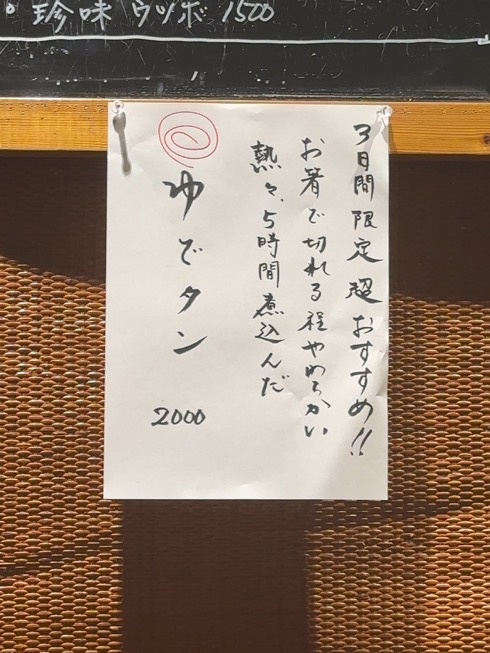 珍味 ウツボ 1500
3日間限定 超おすすめ!!
お箸で切れる程やわらかい
熱々、5時間煮込んだ
ゆでタン
2000